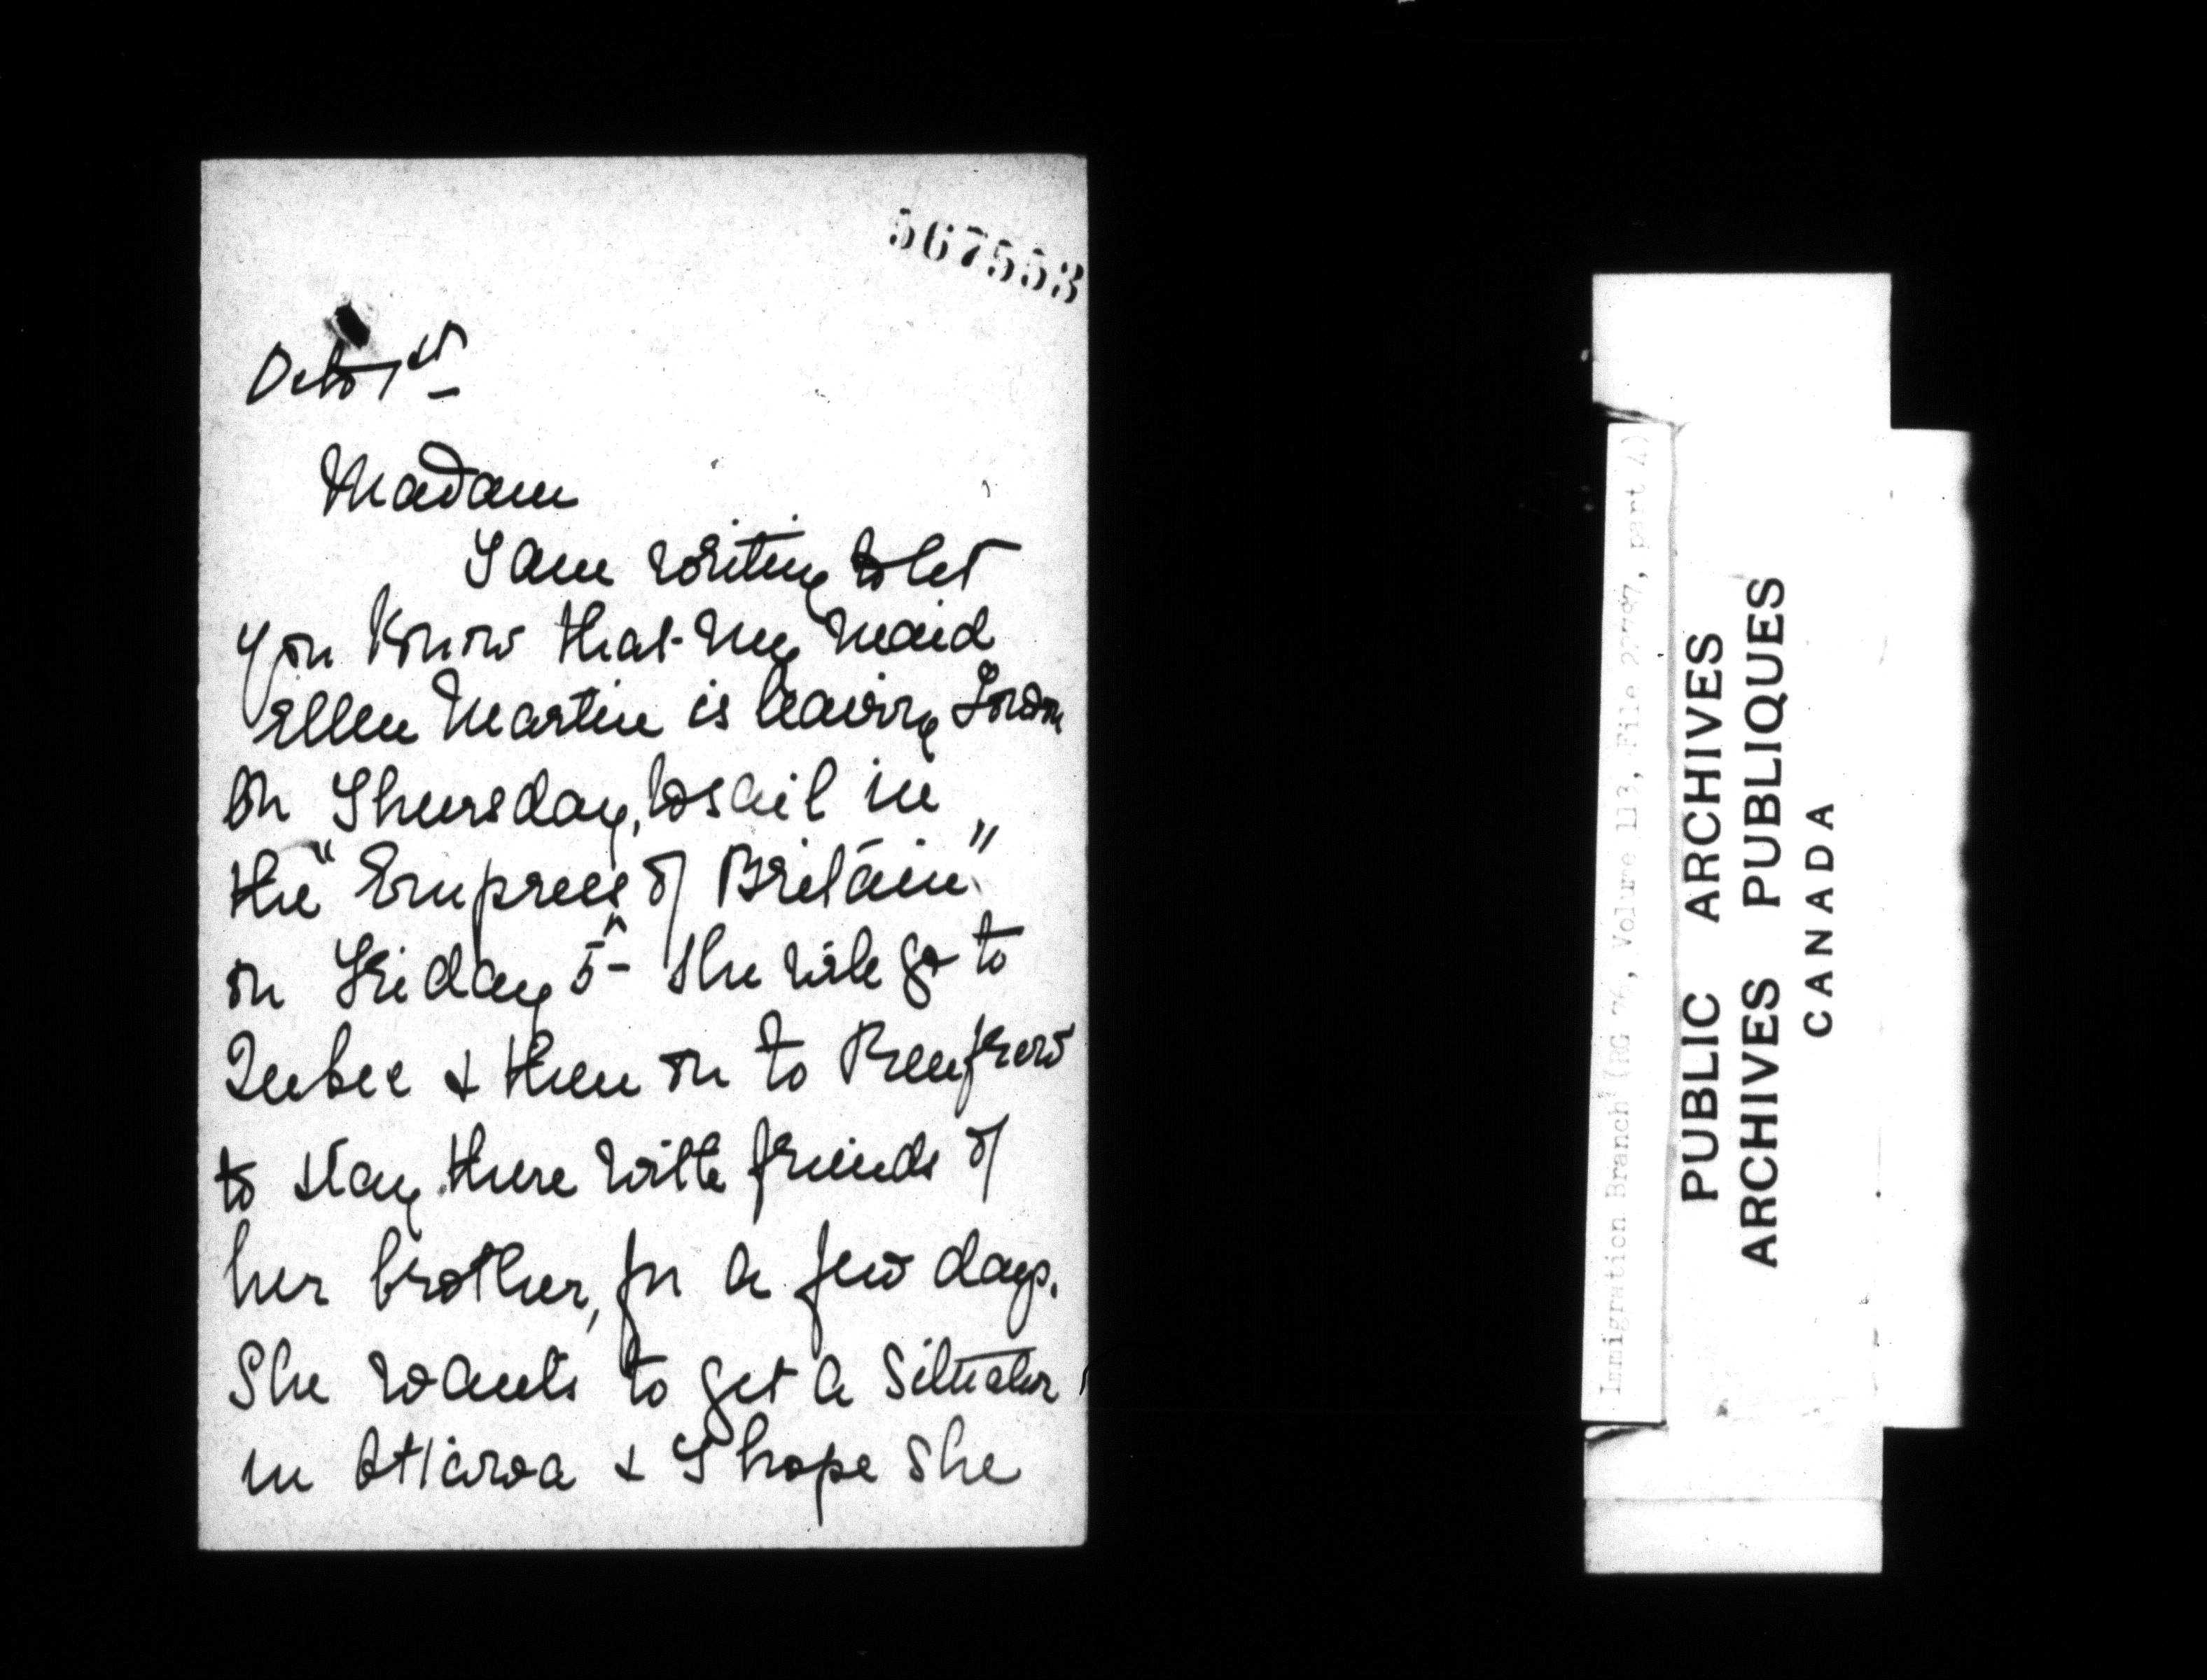 567553
Octo 1st
Madam
I am writing to let
you know that my maid
Ellen Martin is leaving London
on Thursday, to sail in
the "Empress of Britain"
on Friday 5th She will go to
Quebec & then on to Renfrew
to stay there with friends of
her brother, for a few days.
She wants to get a situation
in Ottawa & I hope she
Immigration Branch (RG 76, Volume 113, File 22787, part 4)
PUBLIC ARCHIVES
ARCHIVES PUBLIQUES
CANADA